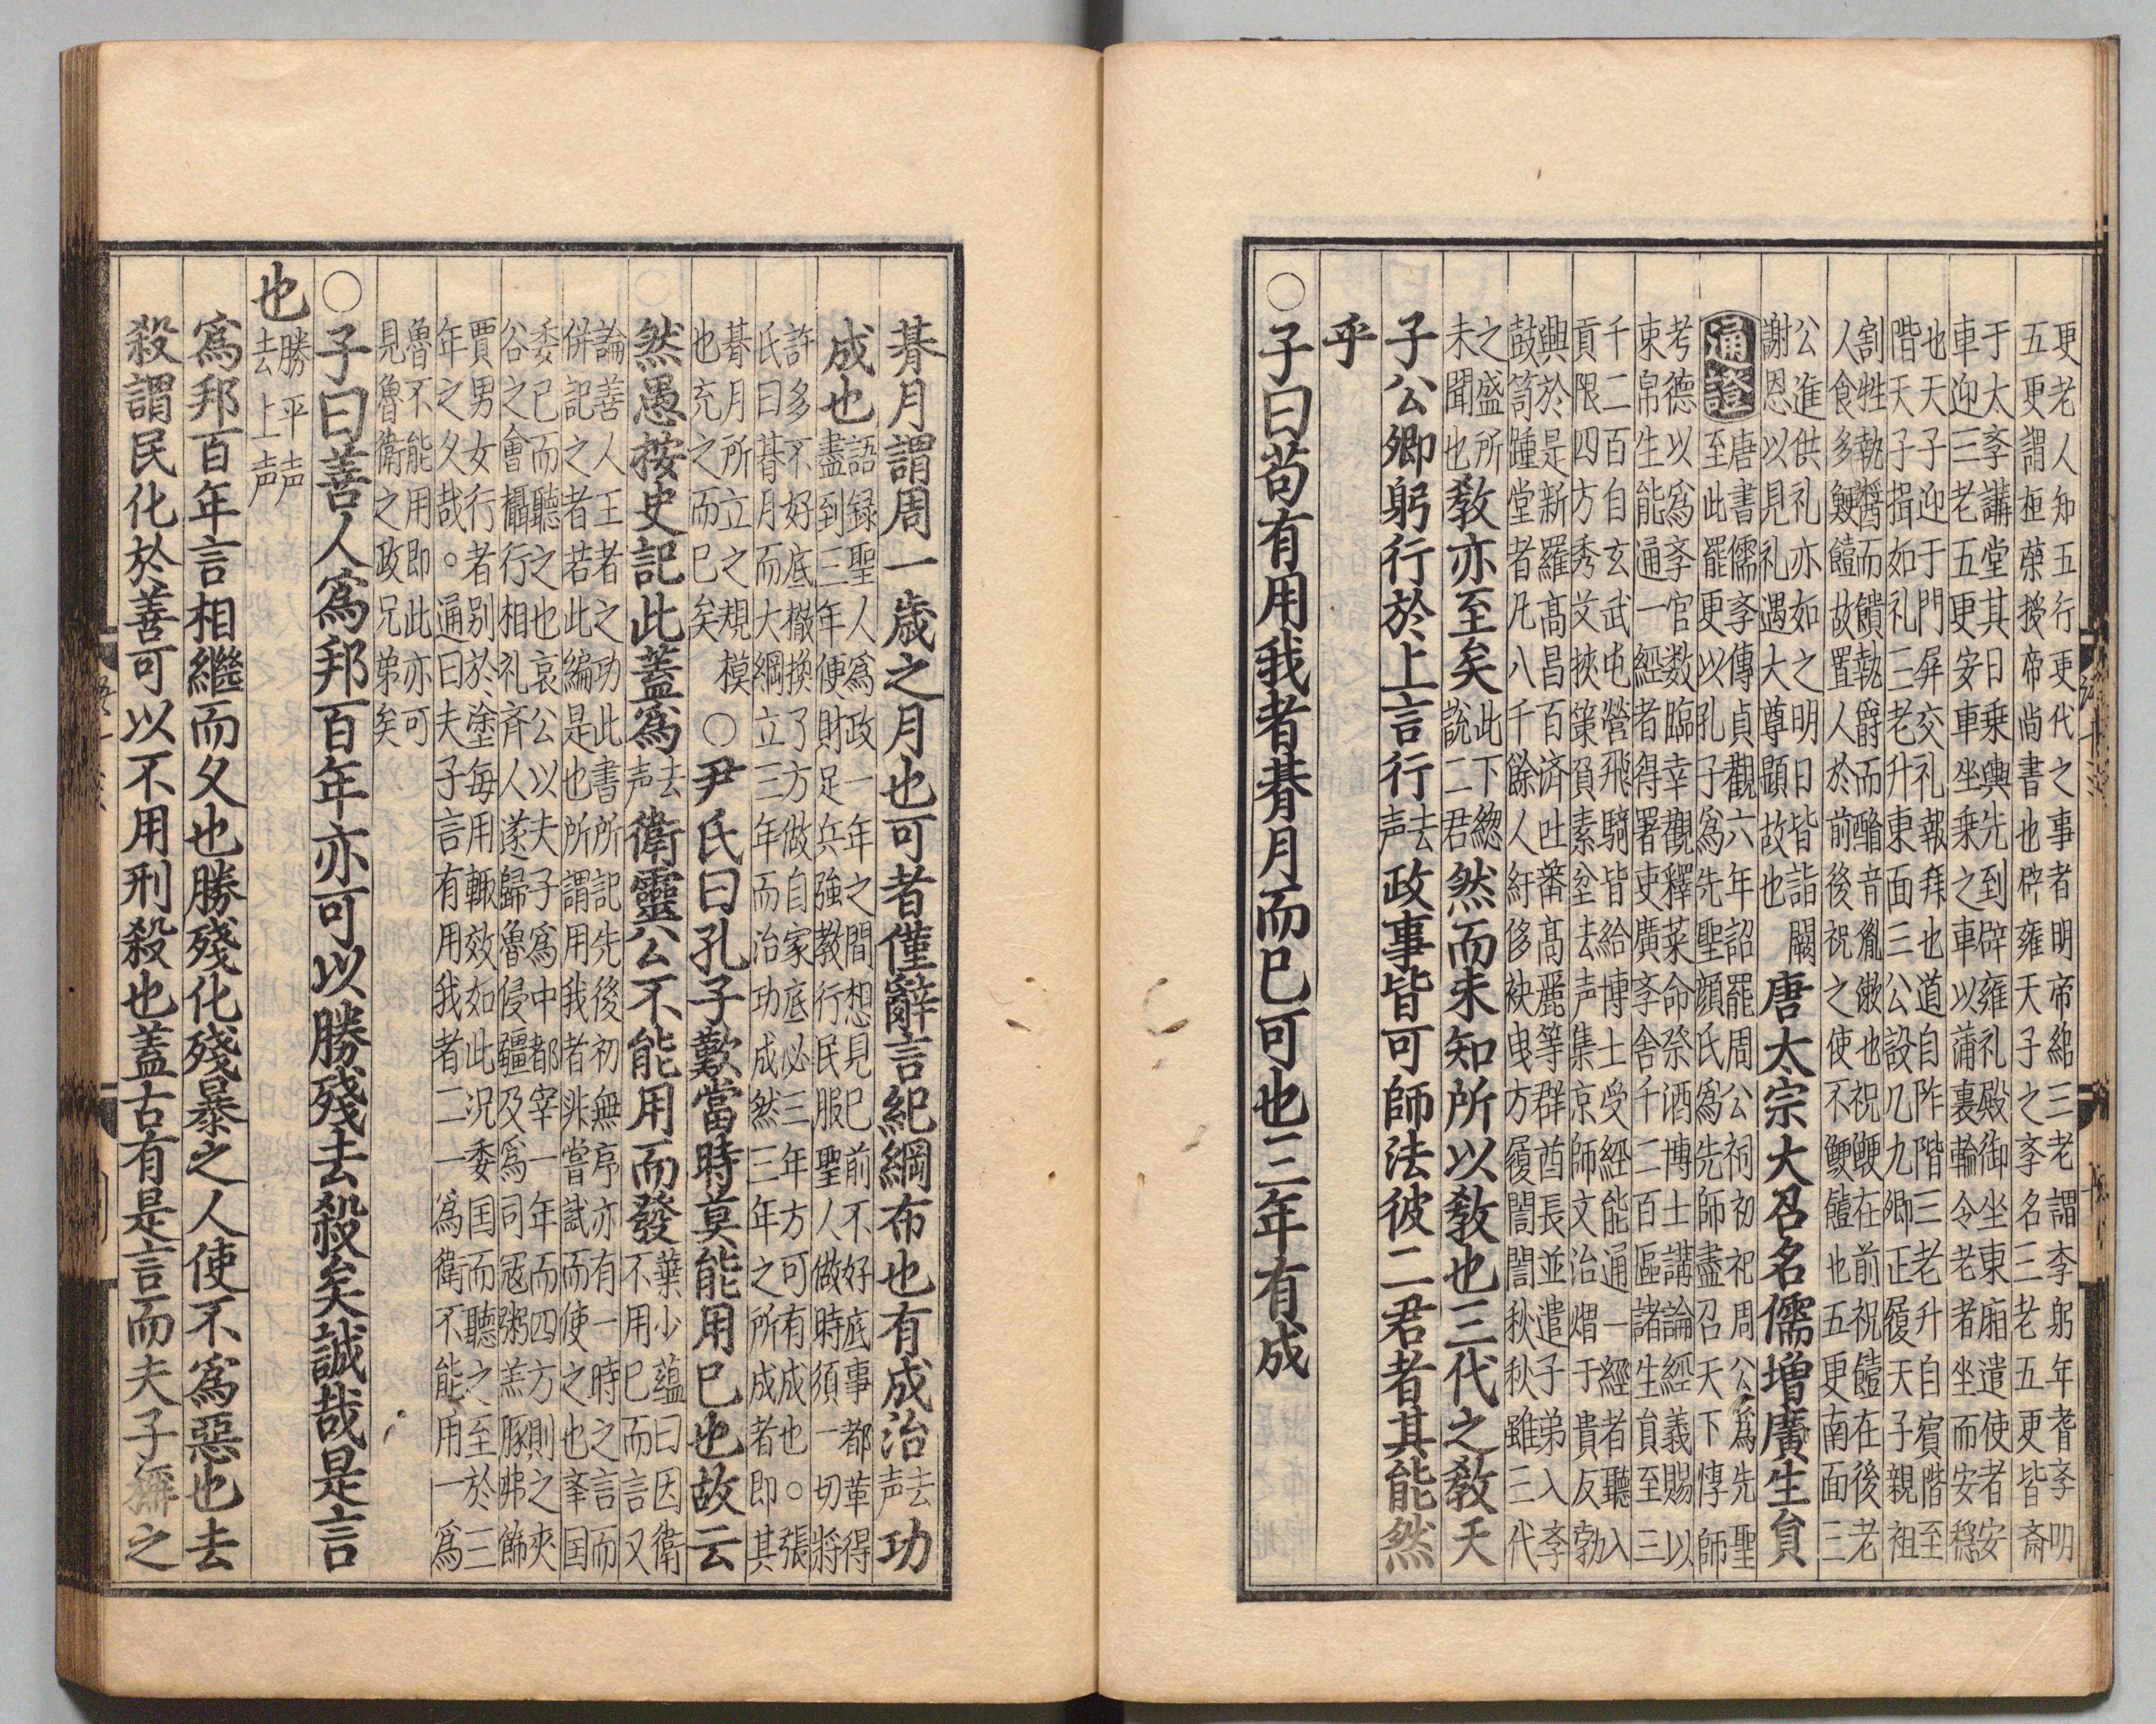 更老人知五行更代之事者明帝綰三老謂李躬年耆孝明
五更謂桓榮授帝尚書也辟雍天子之孝名三老五更皆齋
于太孝講堂其日乗輿先到辟雍礼殿御坐東廂遣使者安
車迎三老五更安車坐乗之車以蒲裹輪令老者坐而安穏
也天子迎于門屏交礼報拜也道自阼階三老升自賓階至
階天子揖如礼三老升東面三公設几九卿正履天子親袒
割牲執醬而饋執爵而酳音胤漱也祝鯁在前祝饐在後老
人食多鯁饐故置人於前後祝之使不鯁饐也五更南面三
公進供礼亦如之明日皆詣闕
謝恩以見礼遇大尊顯故也
唐太宗大召名儒増廣生員
通證
唐書儒孝傳貞觀六年詔罷周公祠初祀周公爲先聖
至此罷更以孔子爲先聖顔氏爲先師盡召天下惇師
考德以爲孝官数臨幸觀釋菜命祭酒博士講論經義賜以
束帛生能通一經者得署吏廣孝舎千二百區諸生員至三
千二百自玄武屯營飛騎皆給博士受經能通一經者聽入
貢限四方秀艾挾策負素坌去声集京師文治煟于貴反勃
興於是新羅髙昌百済吐蕃髙麗等群酋長並遣子弟入孝
鼓笥踵堂者凡八千餘人紆侈袂曵方履誾誾秋秋雖三代
之盛所
未聞也
教亦至矣
此下緫
説二君
然而未知所以教也三代之教天
子公卿躬行於上言行
去
声
政事皆可師法彼二君者其能然
乎
○子曰苟有用我者朞月而已可也三年有成
朞月謂周一歳之月也可者僅辭言紀綱布也有成治
去
声
功
成也
語録聖人爲政一年之間想見已前不好底事都革得
盡到三年便財足兵強教行民服聖人做時須一切將
許多不好底撤換了方做自家底必三年方可有成也○張
氏曰朞月而大綱立三年而治功成然三年之所成者即其
朞月所立之規模
也充之而已矣
○尹氏曰孔子歎當時莫能用已也故云
然愚按史記此蓋爲
去
声
衛靈公不能用而發
葉少蕴曰因衛
不用已而言又
論善人王者之功此書所記先後初無序亦有一時之言而
併記之者若此編是也所謂用我者非嘗試而使之也夲国
委已而聽之也哀公以夫子爲中都宰一年而四方則之夾
谷之會欇行相礼齐人遂歸魯侵疆及爲司寇粥羔豚弗飾
賈男女行者别於塗毎用輙效如此况委国而聽之至於三
年之久哉○通曰夫子言有用我者二一爲衛不能用一爲
魯不能用即此亦可
見魯衛之政兄弟矣
○子曰善人爲邦百年亦可以勝殘去殺矣誠哉是言
也
勝平声
去上声
爲邦百年言相繼而久也勝殘化殘暴之人使不爲惡也去
殺謂民化於善可以不用刑殺也蓋古有是言而夫子稱之